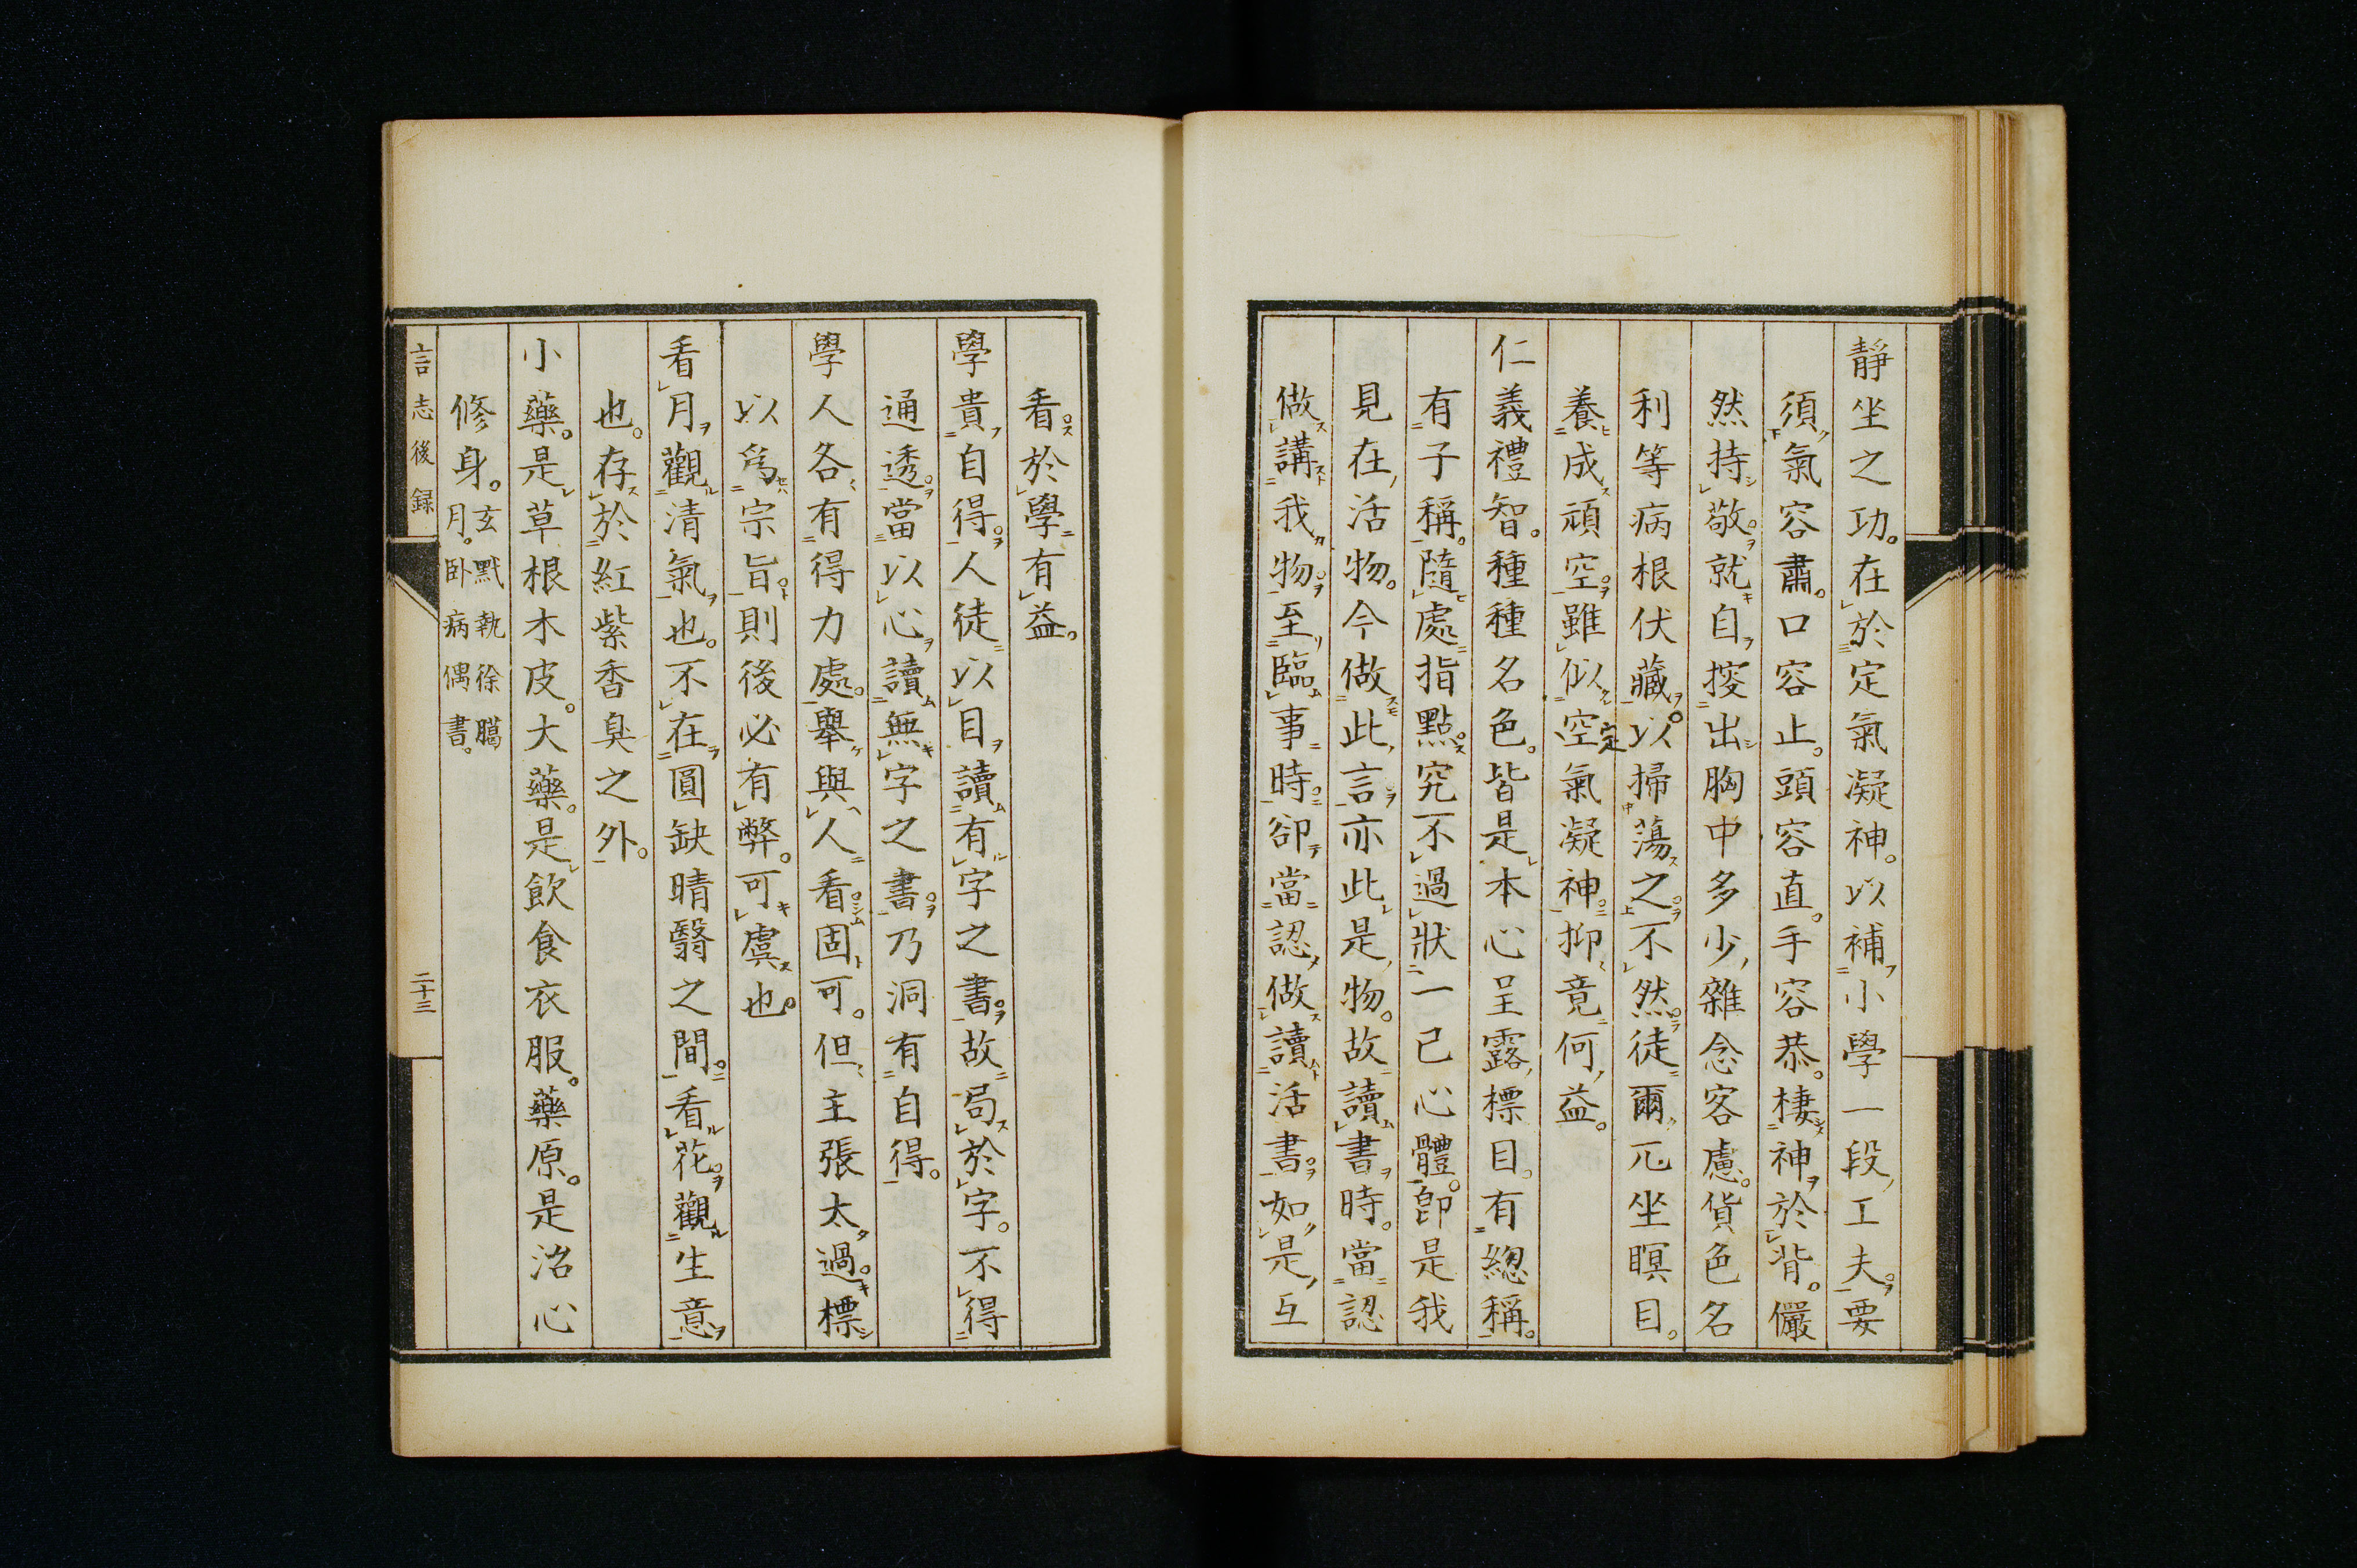 靜坐之功。在於定氣凝神。以補小學一段工夫。要
須氣容肅。口容止。頭容直。手容恭。棲神於背。儼
然持敬。就自搜出胸中多少雜念客慮。貨色名
利等病根伏藏。以掃蕩之。不然徒爾兀坐瞑目。
養成頑空。雖似定氣凝神。抑竟何益。
仁義禮智。種種名色。皆是本心呈露標目。有總稱。
有子稱。隨處指點。究不過狀一己心體。卽是我
見在活物。今做此言。亦此是物。故讀書時。當認
做講我物。至臨事時。卻當認做讀活書。如是互
看。於學有益。
學貴自得。人徒以目讀有字之書。故局於字。不得
通透。當以心讀無字之書。乃洞有自得。
學人各有得力處。舉與人看。固可。但主張太過。標
以爲宗旨。則後必有弊。可虞也。
看月觀清氣也。不在圓缺晴翳之間。看花觀生意
也。存於紅紫香臭之外。
小藥。是草根木皮。大藥。是飲食衣服。藥原。是治心
修身。玄黓執徐臈月。臥病偶書。
言志後録
二十三